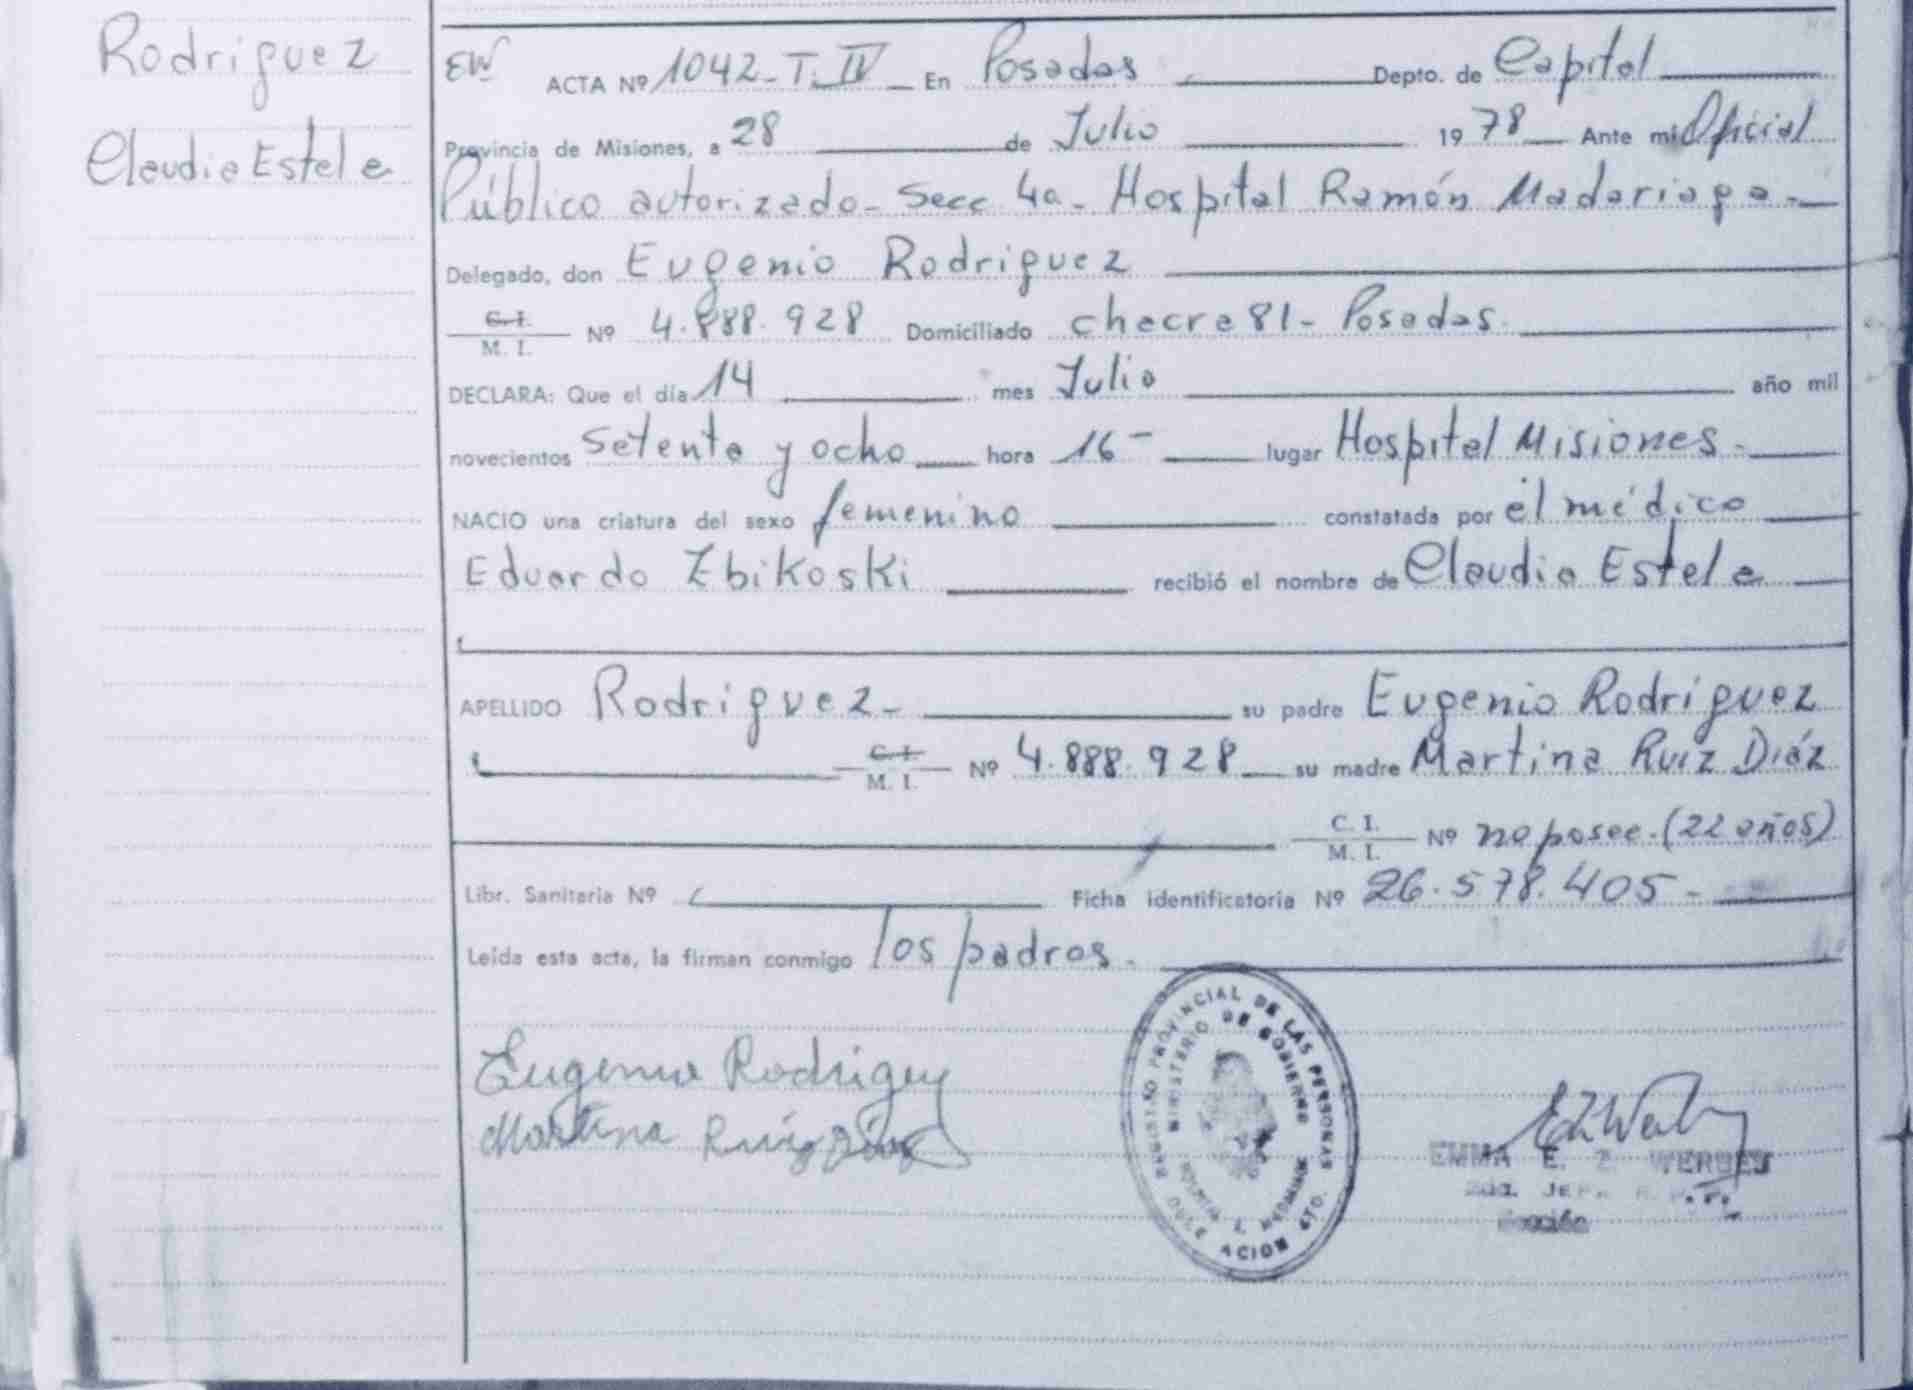 Rodriguez
Claudia Estela
EW ACTA Nº 1042 - T. IV En Posadas Depto. de Capital
Provincia de Misiones, a 28 de Julio 1978 Ante mi Oficial
Público autorizado - Secc 4a - Hospital Ramón Madariaga -
Delegado, don Eugenio Rodriguez
C. I.
M. I. Nº 4.888.928 Domiciliado chacra 81 - Posadas
DECLARA: Que el día 14 mes Julio año mil
novecientos setenta y ocho hora 16 - lugar Hospital Misiones -
NACIO una criatura del sexo femenino constatada por el médico
Eduardo Zbikoski recibió el nombre de Claudia Estela
APELLIDO Rodriguez - su padre Eugenio Rodriguez
C. I.
M. I. Nº 4.888.928 su madre Martina Ruiz Diáz
C. I.
M. I. Nº no posee - (22 años)
Libr. Sanitaria Nº Ficha identificatoria Nº 26.578.405 -
Leída esta acta, la firman conmigo los padros -
Eugenio Rodriguez
Martina Ruiz Diaz
REGISTRO PROVINCIAL DE LAS PERSONAS
MINISTERIO DE GOBIERNO
EMMA E. Z. WERBES
2da. JEFA
Sección